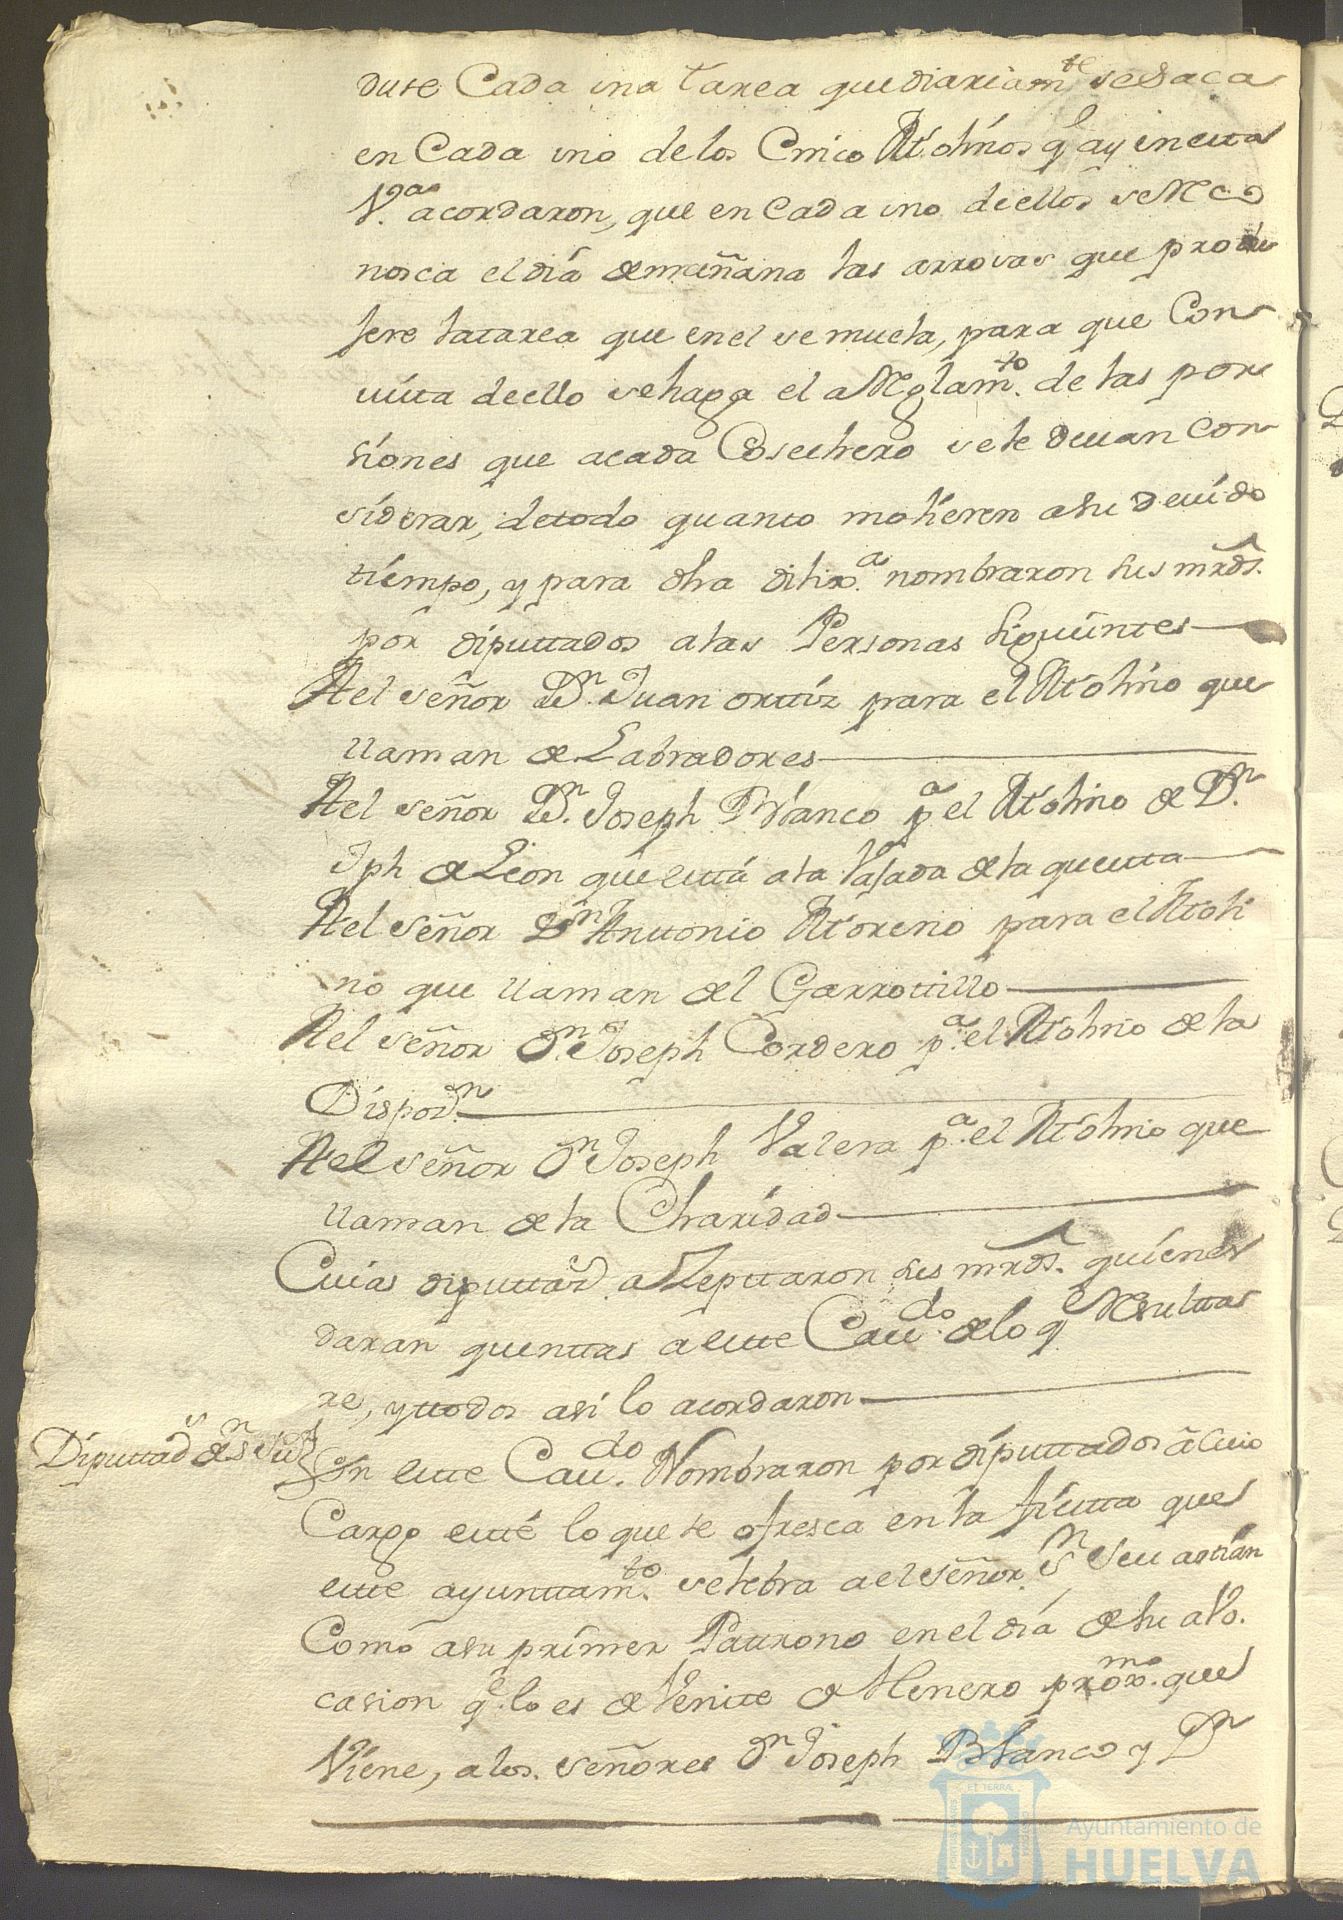 duse Cada una tarea que diariamte se Saca
en Cada uno de los Cinco Molinos q ay en esta
V.a acordaron, que en Cada uno de ellos se Reco
nosca el día de mañana las arrovas que produ
sere la tarea que en el se muela, para que Con
vista de ello se haga el aReglamto. de las por
siones que acada Cosechero se le devan Con
siderar, de todo quanto molieren a su devido
tiempo, y para dha dilixa. nombraron sus mrds.
por diputtados a las Personas siguientes
Ael señor Dn. Juan orttiz para el Molino que
llaman de Labradores
Ael señor Dn. Joseph Blanco pa. el Molino de Dn.
Jph de Leon que esttá a la Vajada de la questta
Ael señor Dn Anttonio Moreno para el Moli
no que llaman del Garrottillo
Ael señor Dn. Joseph Cordero pa. el Molino de la
Ael señor Dn Joseph Valera pa. el Molino que
llaman de la Charidad
Cuias diputtasd. azepttaron sus mrds. quienes
daran quenttas a estte Cavdo. de lo q Resulttas
re, y ttodos asi lo acordaron
En estte Cavdo. Nombraron por diputtados a Cuio
Cargo estté lo que se ofresca en la fiestta que
estte ayunttamto. selebra a el señor Sn Sevastian
Como a su primer Pattrono en el día de su abo.
casion q lo es de Veintte de Henero proxmo. que
Viene, a los señores Dn Joseph Blanco y Dn
Ayuntamiento de
HUELVA